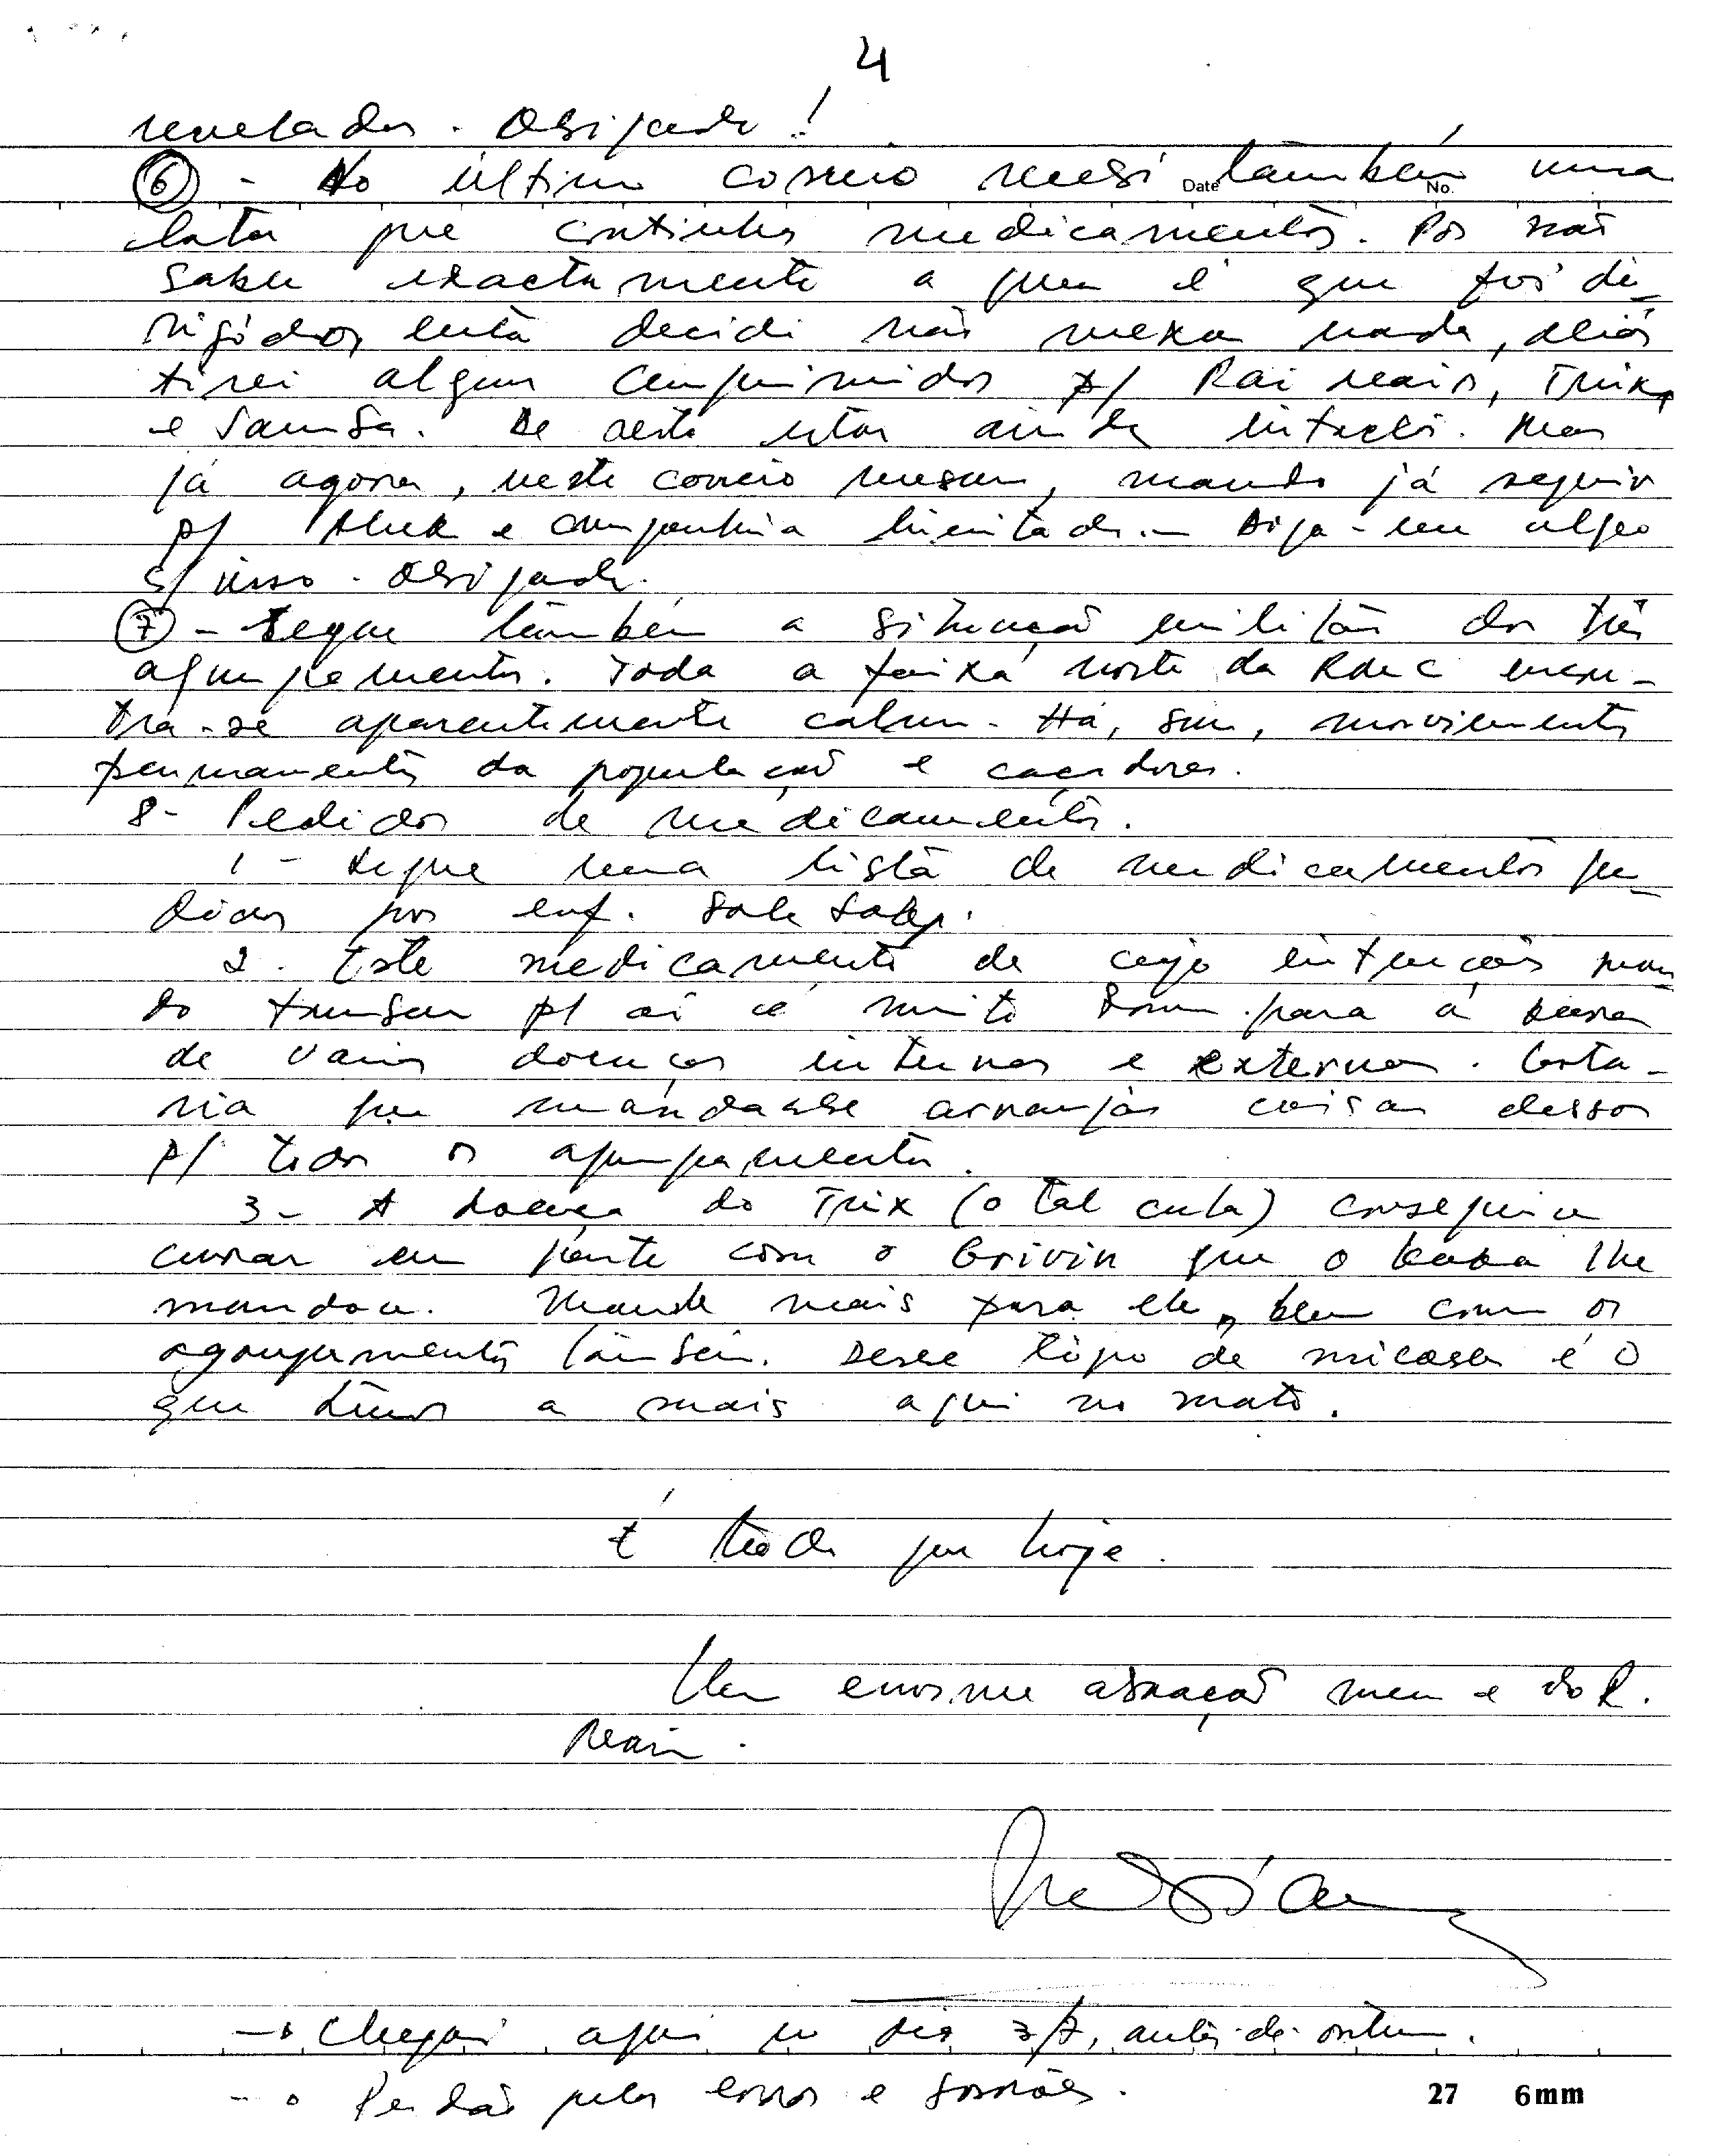 4
revelados. Obrigado!
6 - No último correio recebi também uma
Date No.
lata que continha medicamentos. Por não
saber exactamente a quem é que foi di-
rigidos então decidi não mexer nada, aliás
tirei alguns comprimidos p/ Rai reais, Trix,
e Samba. De resto estão ainda intactos. Mas
já agora, neste correio mesmo, mando já seguir
p/ e companhia limitada. - Diga-me algo
s/ isso. Obrigado.
7 - Segue também a situação militar dos três
agrupamentos. Toda a faixa norte da RDC encon-
tra-se aparentemente calma. Há, sim, movimentos
permanentes da população e caçadores.
8 - Pedidos de medicamentos.
1 - Segue uma lista de medicamentos pe-
didos por enf. Sala Sala.
2. Este medicamento de cujo intenções man
do p/ aí é muito bom para a
de varias doenças internas e externas. Gosta-
ria que mandasse arranjar coisas dessas
p/ todos os agrupamentos.
3 - A doença do Trix (o tal cuba) conseguiu
curar em parte com o Grivin que o kota lhe
mandou. Mande mais para ele, bem como os
agrupamentos também. Desse tipo de micose é o
que temos a mais aqui no mato.
É tudo por hoje.
Um enorme abração meu e do R.
Reais.
→ Cheguei aqui no dia 3/7, antes-de-ontem.
→ Perdão pelos erros e borrões.
27 6mm